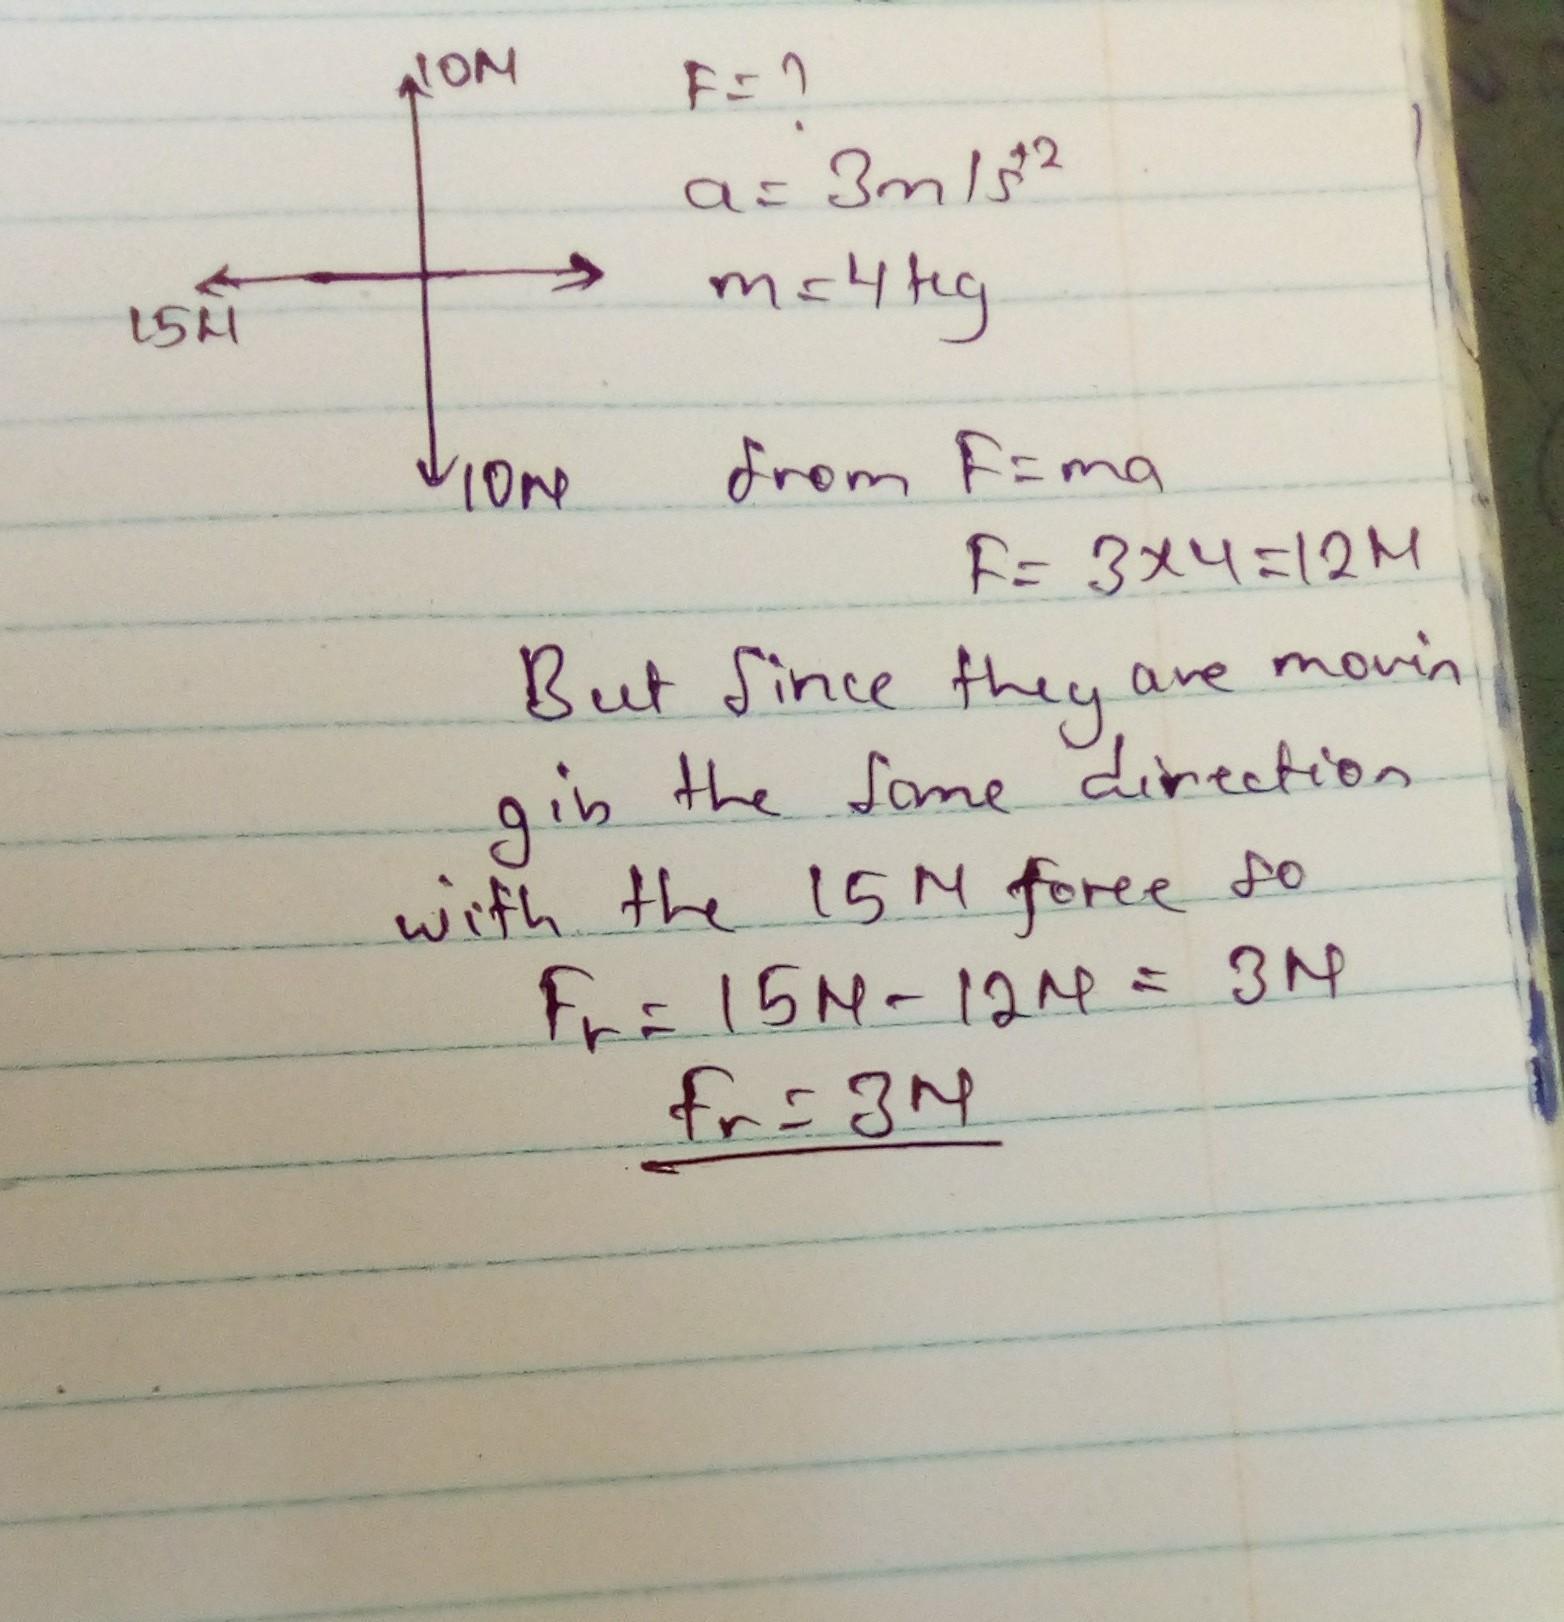 10N
F = ?
a = 3m/s^2
15N
m = 4kg
10N
from F = ma
F = 3x4 = 12N
But since they are movin
g in the same direction
with the 15N force so
Fr = 15N - 12N = 3N
fr = 3N